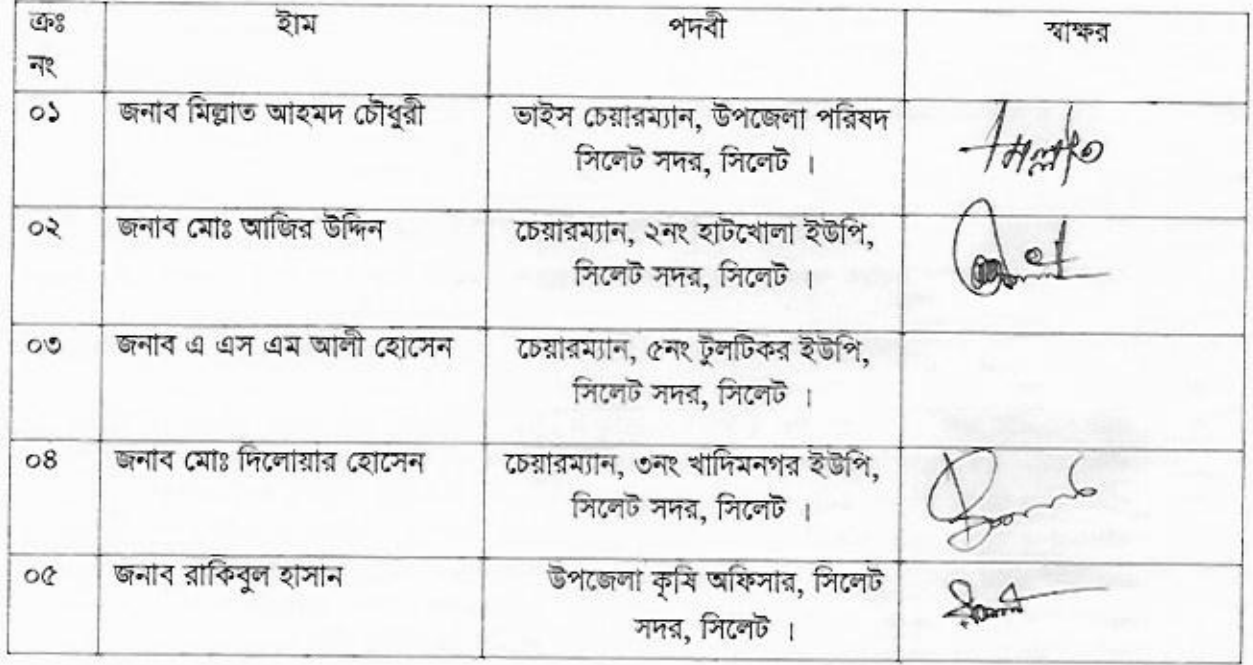 ক্রঃ নং ইাম পদবী স্বাক্ষর
০১ জনাব মিল্লাত আহমদ চৌধুরী ভাইস চেয়ারম্যান, উপজেলা পরিষদ
সিলেট সদর, সিলেট । মিল্লাত
০২ জনাব মোঃ আজির উদ্দিন চেয়ারম্যান, ২নং হাটখোলা ইউপি,
সিলেট সদর, সিলেট ।
০৩ জনাব এ এস এম আলী হোসেন চেয়ারম্যান, ৫নং টুলটিকর ইউপি,
সিলেট সদর, সিলেট ।
০৪ জনাব মোঃ দিলোয়ার হোসেন চেয়ারম্যান, ৩নং খাদিমনগর ইউপি,
সিলেট সদর, সিলেট ।
০৫ জনাব রাকিবুল হাসান উপজেলা কৃষি অফিসার, সিলেট
সদর, সিলেট ।